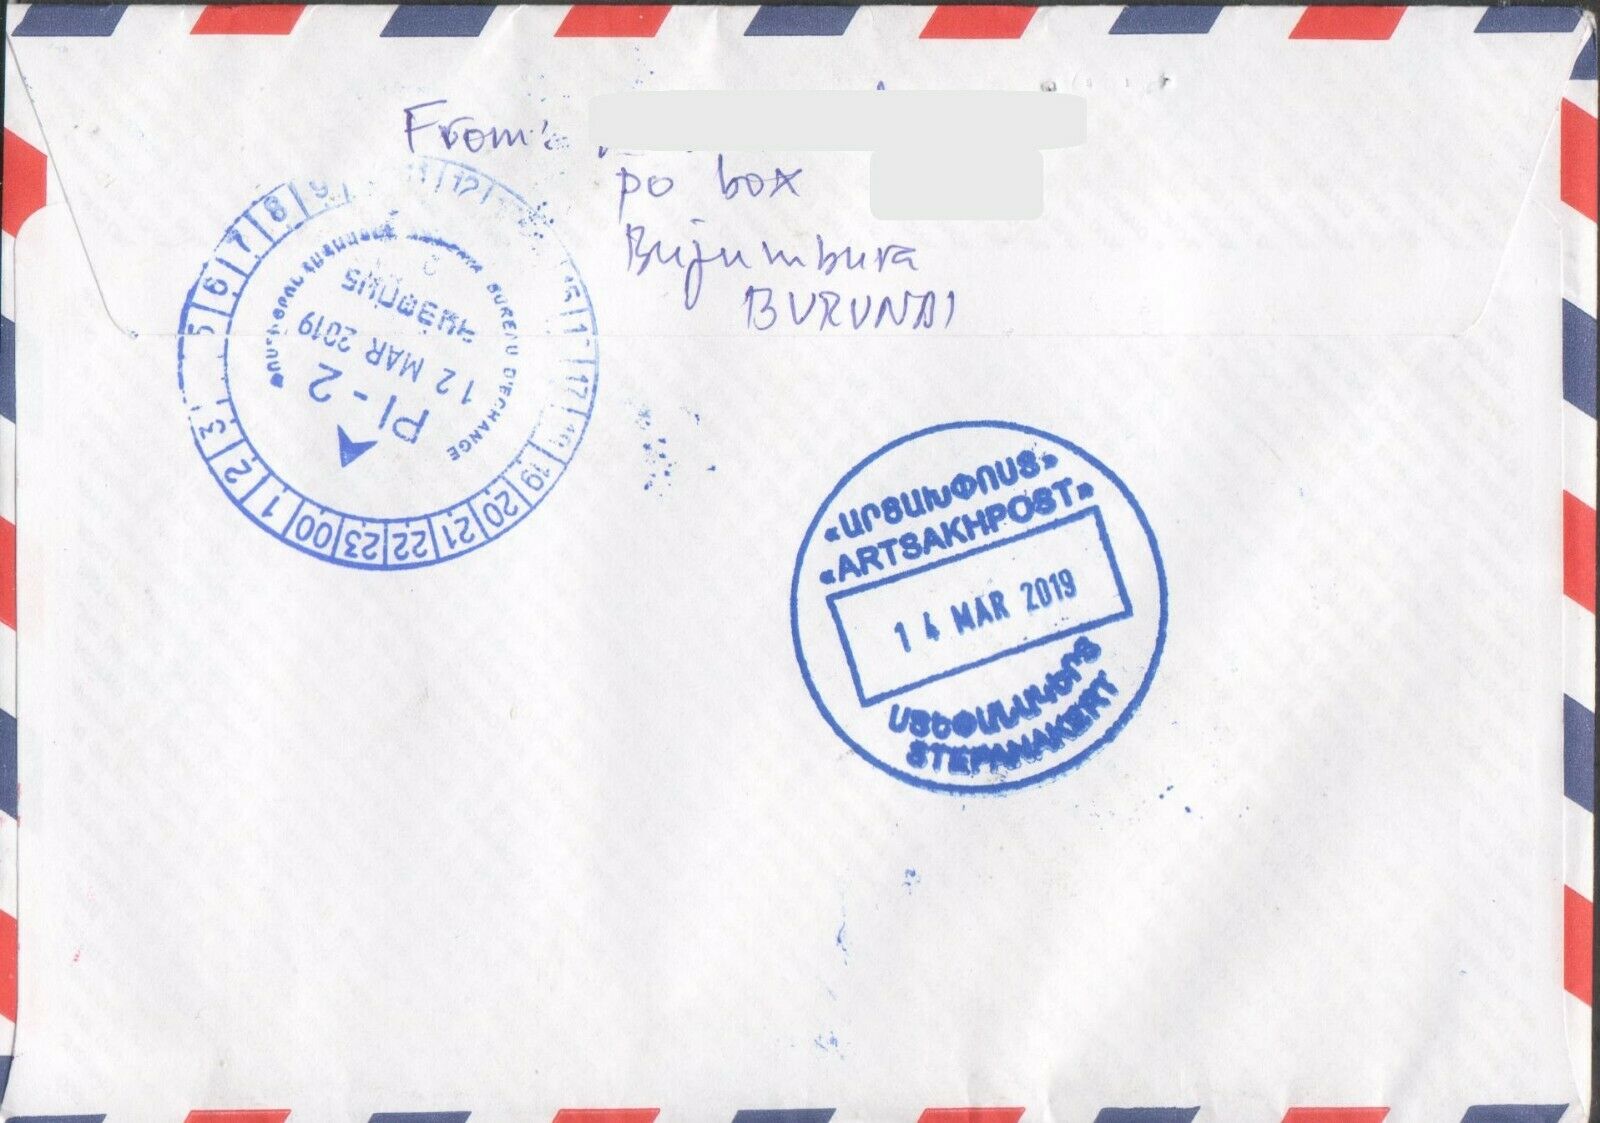 From:
po box
Bujumbura
BURUNDI
BUREAU D'ECHANGE
ՀԱՅՓՈՍՏ
12 MAR 2019
PI-2
00 1 2 3 5 6 7 8 9 12 17 19 20 21 22 23
«ԱՐՑԱԽՓՈՍՏ»
«ARTSAKHPOST»
14 MAR 2019
ՍՏԵՓԱՆԱԿԵՐՏ
STEPANAKERT